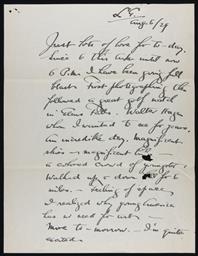 Aug. 6/29
Just lots of love for to-day.
Since to this time until now
6 P.M. I have been going full
blast. First photographing then
followed a great golf match
in Walter Hagen
when I wanted to see for years.
An incredible day. Magnificent
skies - magnificent
a colored crowd of youngsters,
walked up & down for 6
miles. - Feeling of space
I realized why young America
has no need for art -
More to-morrow. - I'm quite